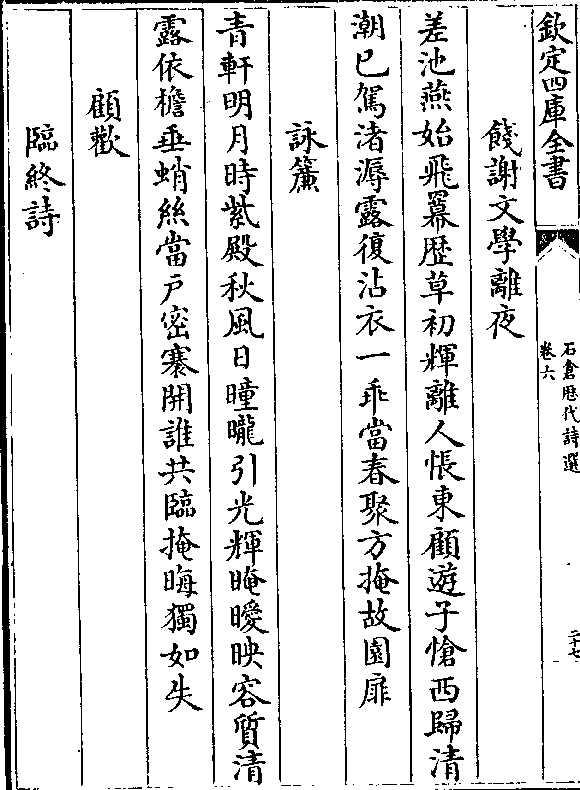 欽定四庫全書
石倉歴代詩選
卷六
二十七
餞謝文學離夜
差池燕始飛羃歴草初輝離人悵東顧遊子愴西歸清
潮已駕渚溽露復沾衣一乖當春聚方掩故園扉
詠簾
青軒明月時紫殿秋風日曈曨引光輝晻曖映容質清
露依檐垂蛸絲當戶密褰開誰共臨掩晦獨如失
顧歡
臨終詩